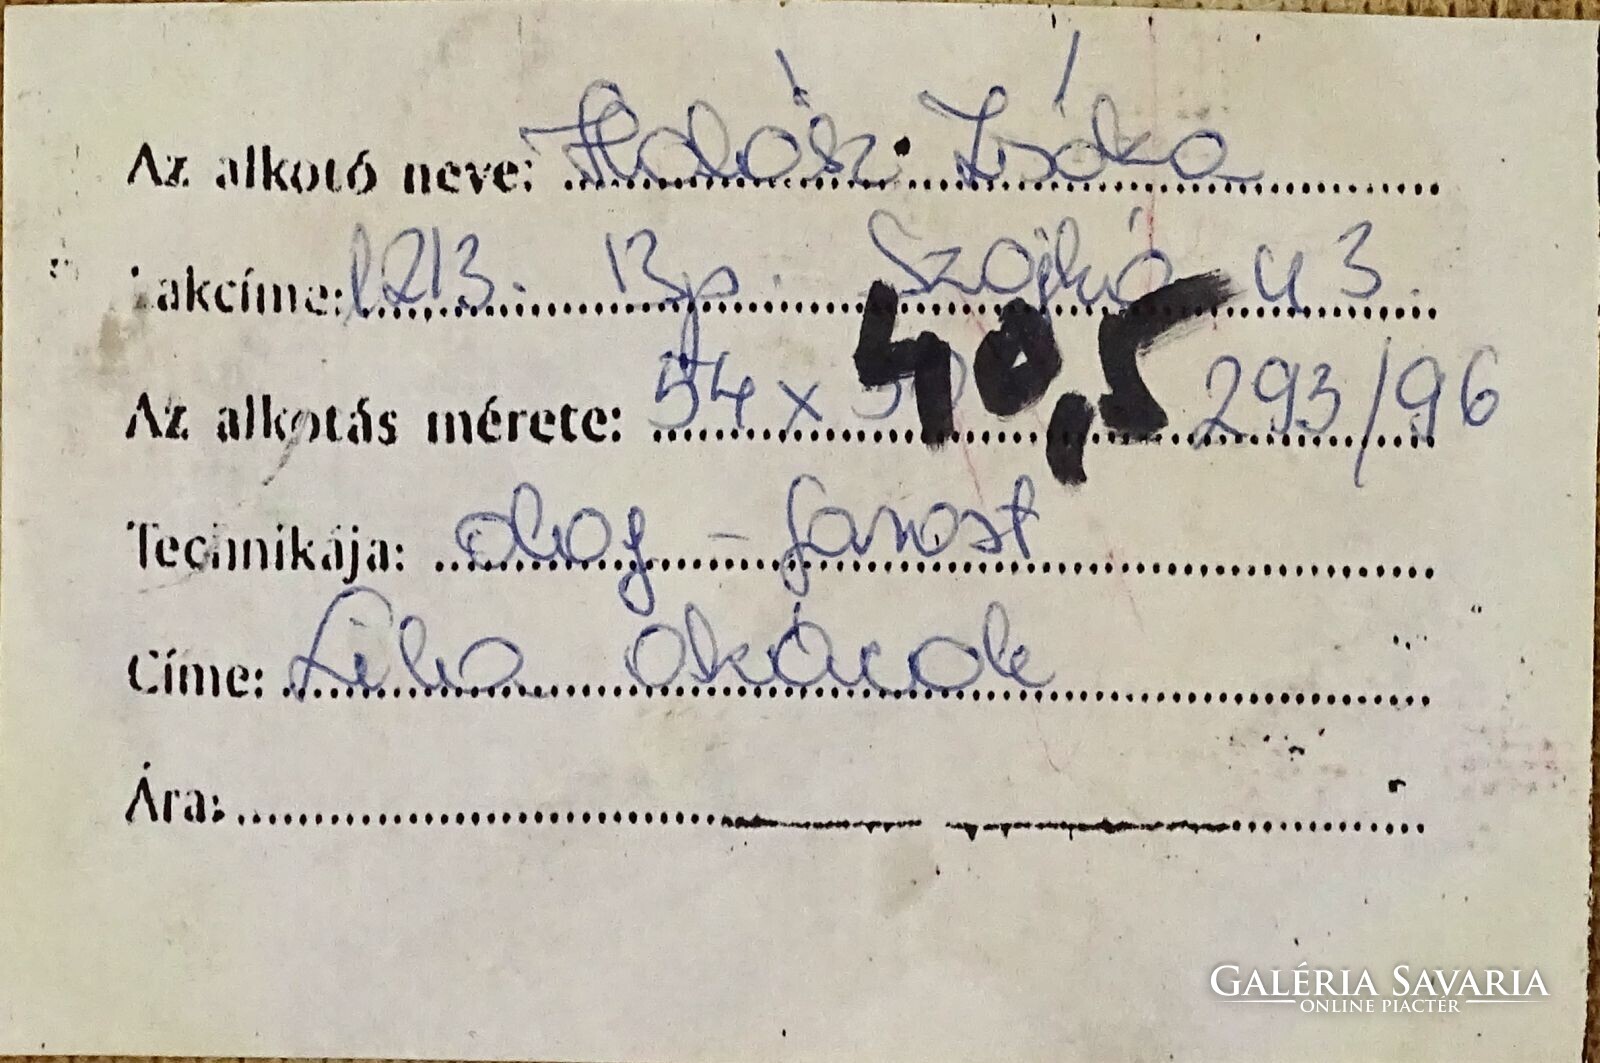 Az alkotó neve: Halász Zsóka
Lakcíme: 1213. Bp. Szajkó u 3.
Az alkotás mérete: 54 x 40,5 293/96
Technikája: olaj - farost
Címe: Lila akácok
Ára:
GALÉRIA SAVARIA
ONLINE PIACTÉR